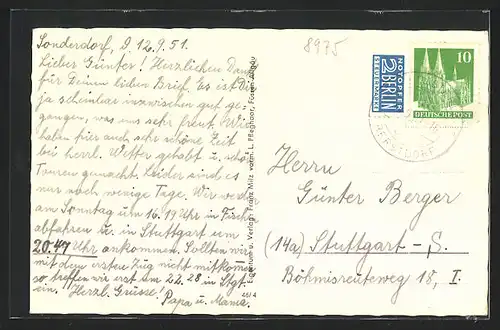 Sonderdorf, D. 12.9.51.
Lieber Günter! Herzlichen Dank
für Deinen lieben Brief. Es ist Dir
ja scheinbar inzwischen gut ge-
gangen, was uns sehr freut. Wir
haben hier auch sehr schöne Zeit
bei herrl. Wetter gehabt u. schöne
Touren gemacht. Leider sind es
nur noch wenige Tage. Wir werden
am Sonntag um 16.19 Uhr in Fischen
abfahren u. in Stuttgart um
20.47 Uhr ankommen. Sollten wir
mit dem ersten Zug nicht mitkommen,
so treffen wir erst um 22.20 in Stgt.
ein. Herzl. Grüsse! Papa u. Mama.
8975
Franz Milz vorm. L. Pfleghaar, Füssen-Allgäu
4614
NOTOPFER
2 BERLIN
STEUERMARKE
10
DEUTSCHE POST
Herrn
Günter Berger
(14a) Stuttgart-S.
Böhmisreuteweg 18, I.